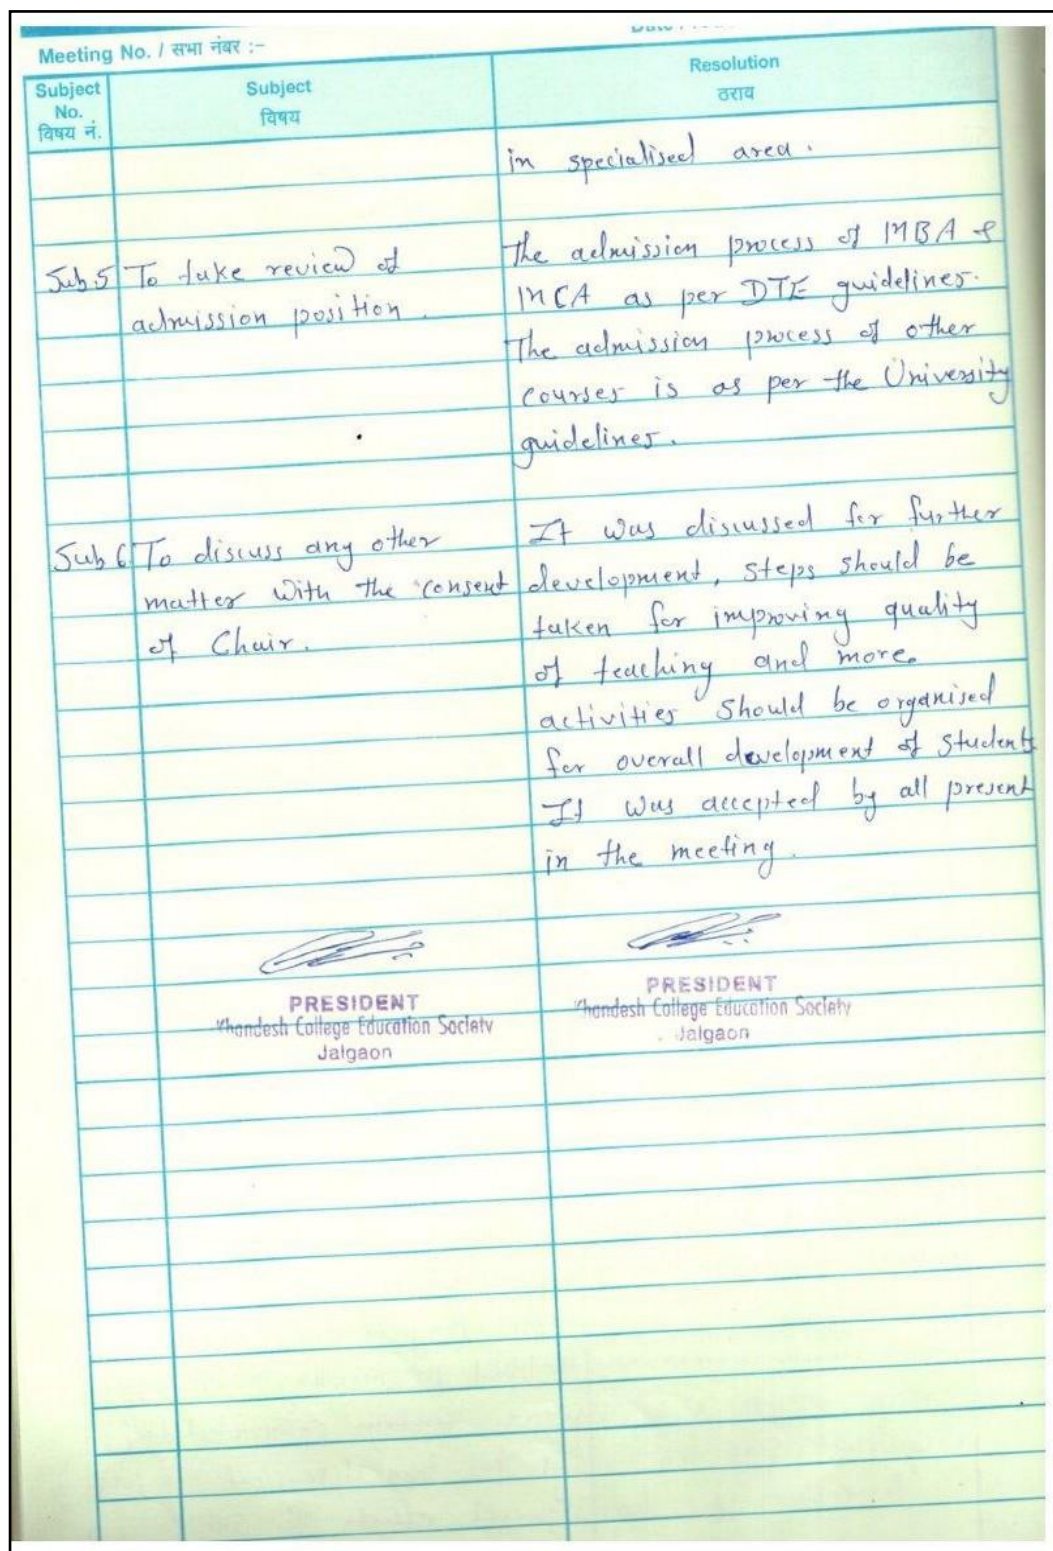 Meeting No. / सभा नंबर :-
Subject No. विषय नं.
Subject विषय
Resolution ठराव
in specialised area.
Sub 5 To take review of admission position.
The admission process of MBA &
MCA as per DTE guidelines.
The admission process of other
courses is as per the University
guidelines.
Sub 6 To discuss any other
matter with the consent
of Chair.
It was discussed for further
development, steps should be
taken for improving quality
of teaching and more
activities should be organised
for overall development of students
It was accepted by all present
in the meeting.
PRESIDENT
Khandesh College Education Society
Jalgaon
PRESIDENT
Khandesh College Education Society
Jalgaon